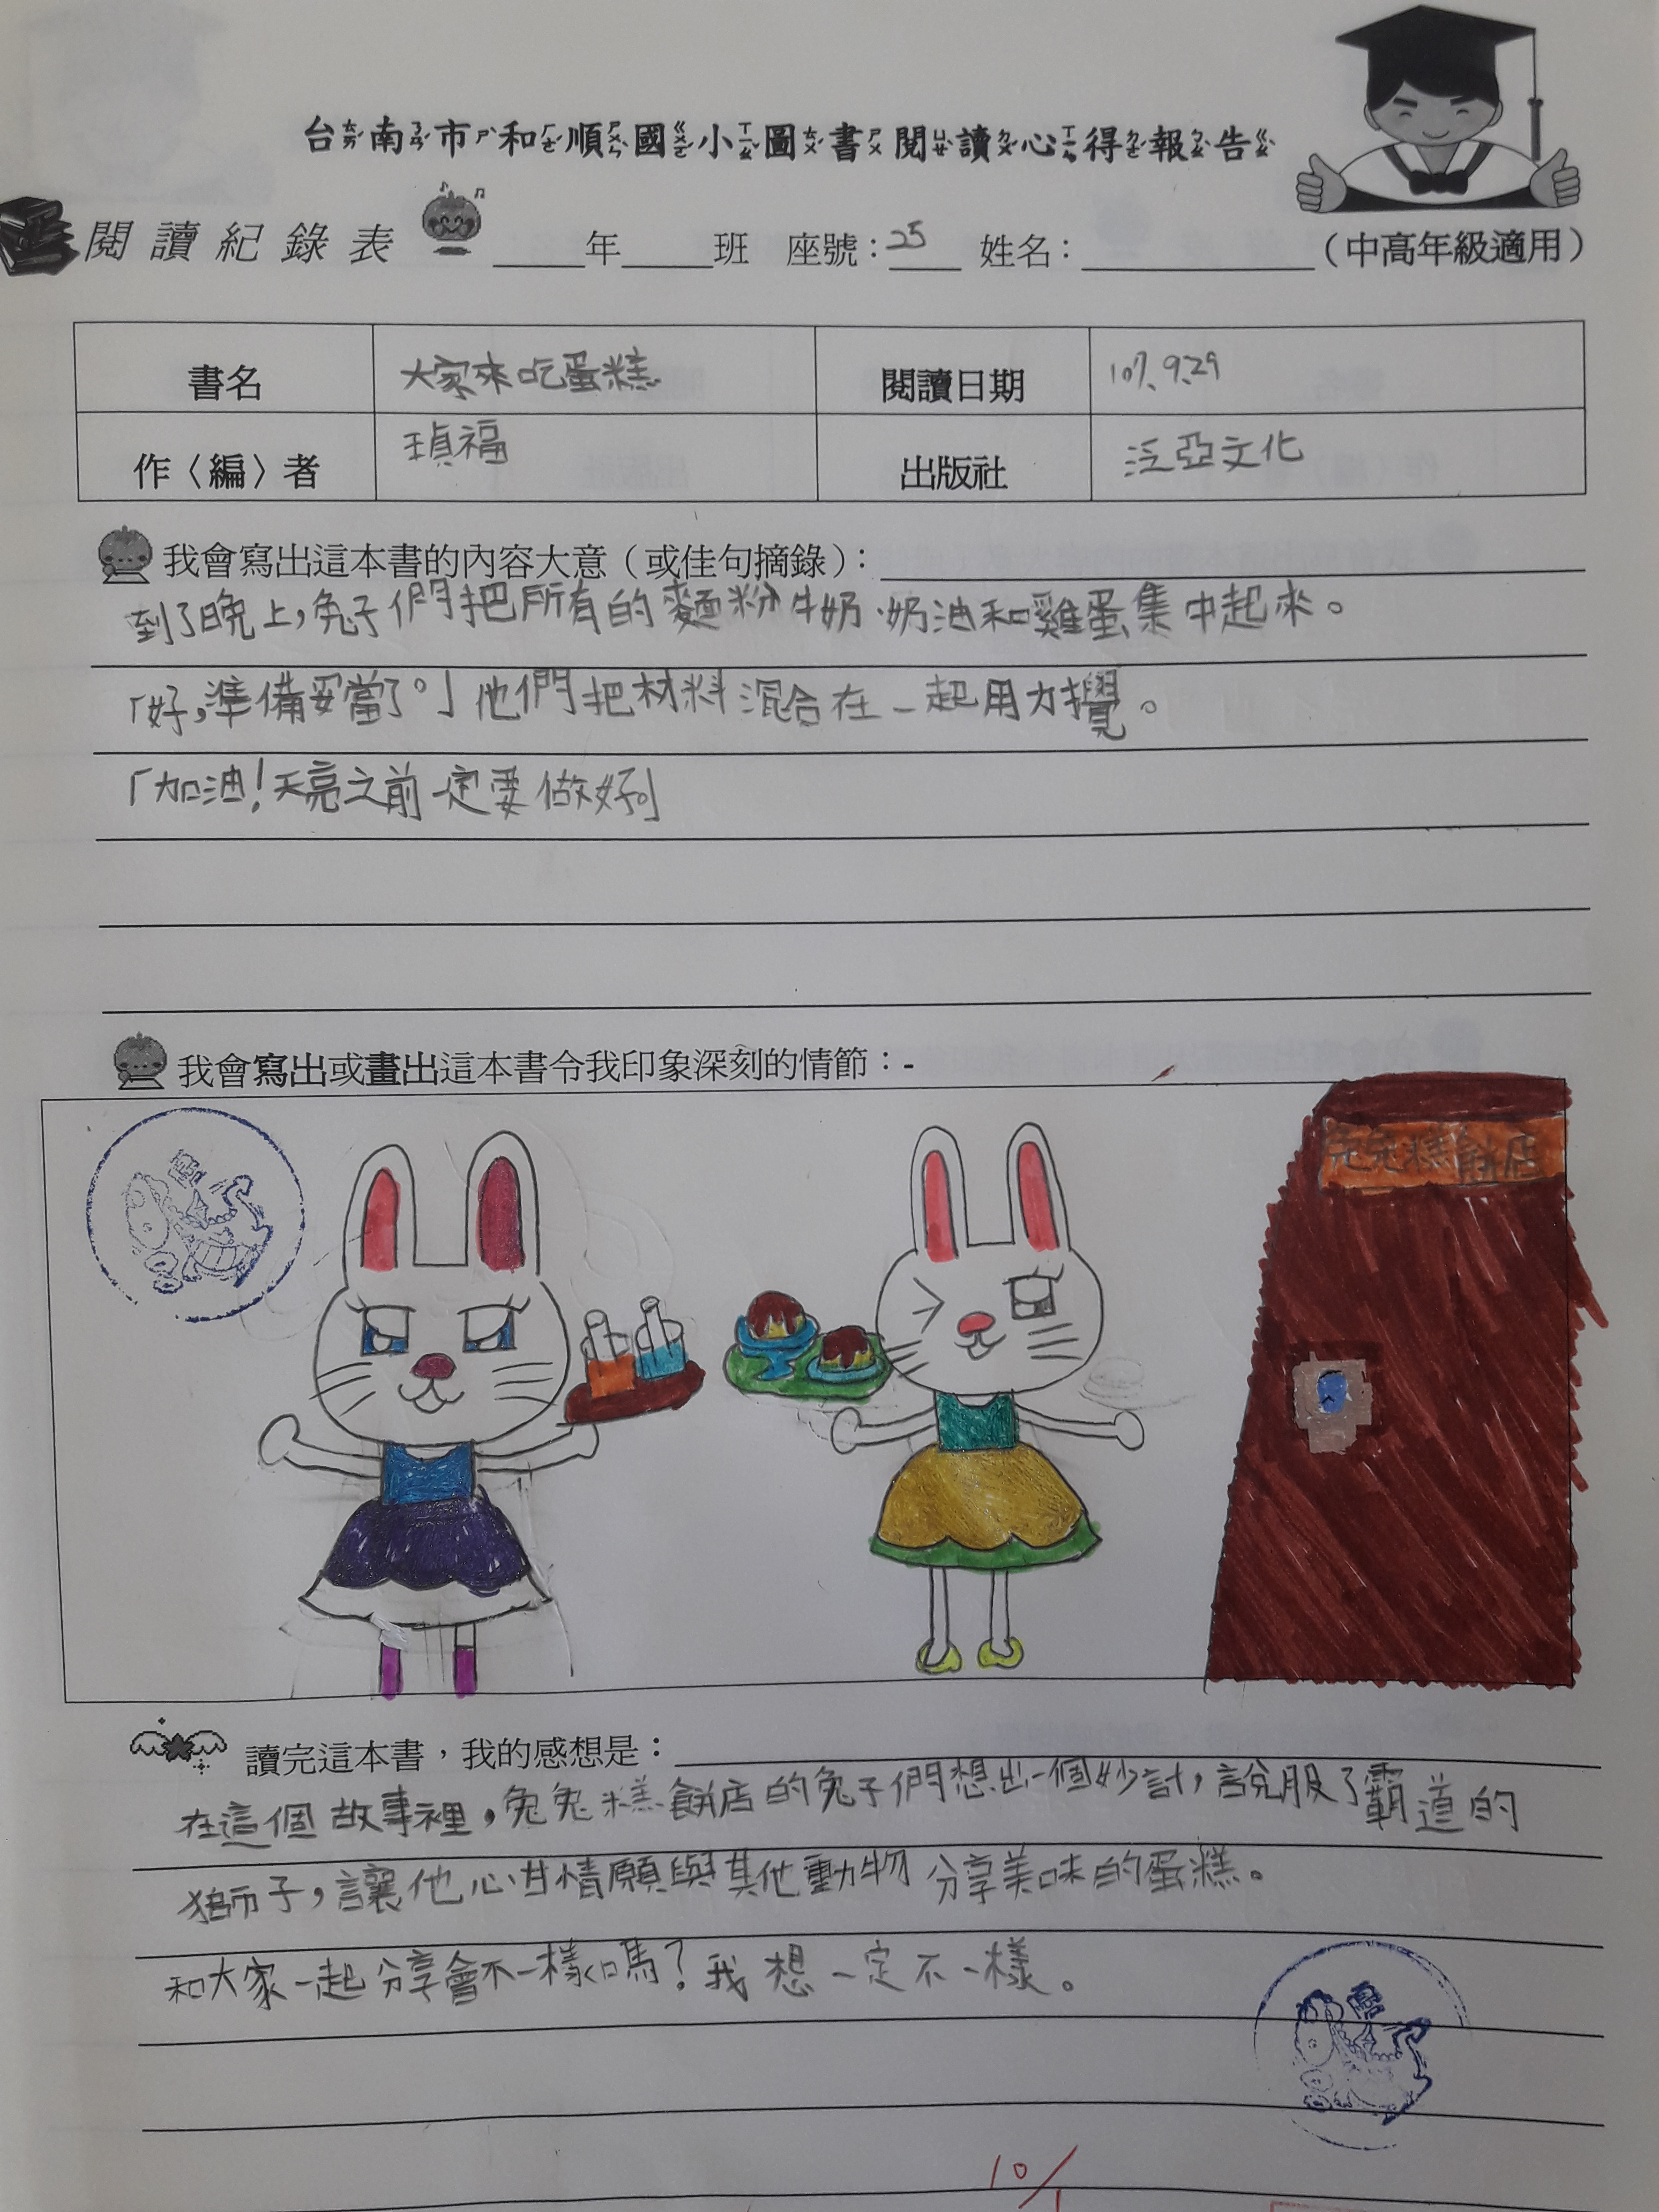 台南市和順國小圖書閱讀心得報告
閱讀紀錄表 ____年____班 座號：25 姓名：________（中高年級適用）
書名 大家來吃蛋糕 閱讀日期 107.9.29
作〈編〉者 瑱福 出版社 泛亞文化
我會寫出這本書的內容大意（或佳句摘錄）：
到了晚上，兔子們把所有的麵粉、牛奶、奶油和雞蛋集中起來。
「好，準備妥當了。」他們把材料混合在一起用力攪。
「加油！天亮之前一定要做好。」
我會寫出或畫出這本書令我印象深刻的情節：-
兔兔糕餅店
讀完這本書，我的感想是：
在這個故事裡，兔兔糕餅店的兔子們想出一個妙計，說服了霸道的
獅子，讓他心甘情願與其他動物分享美味的蛋糕。
和大家一起分享會不一樣嗎？我想一定不一樣。
10/1